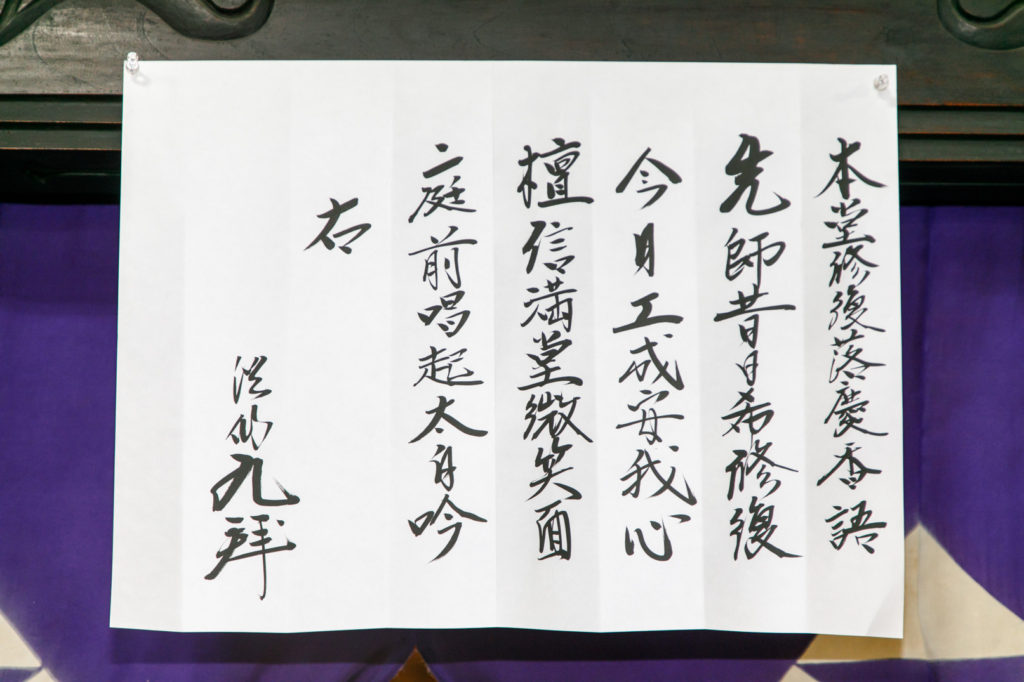 本堂修復落慶香語
先師昔日希修復
今月工成安我心
檀信満堂微笑面
庭前唱起太白吟
右
洪仙九拝